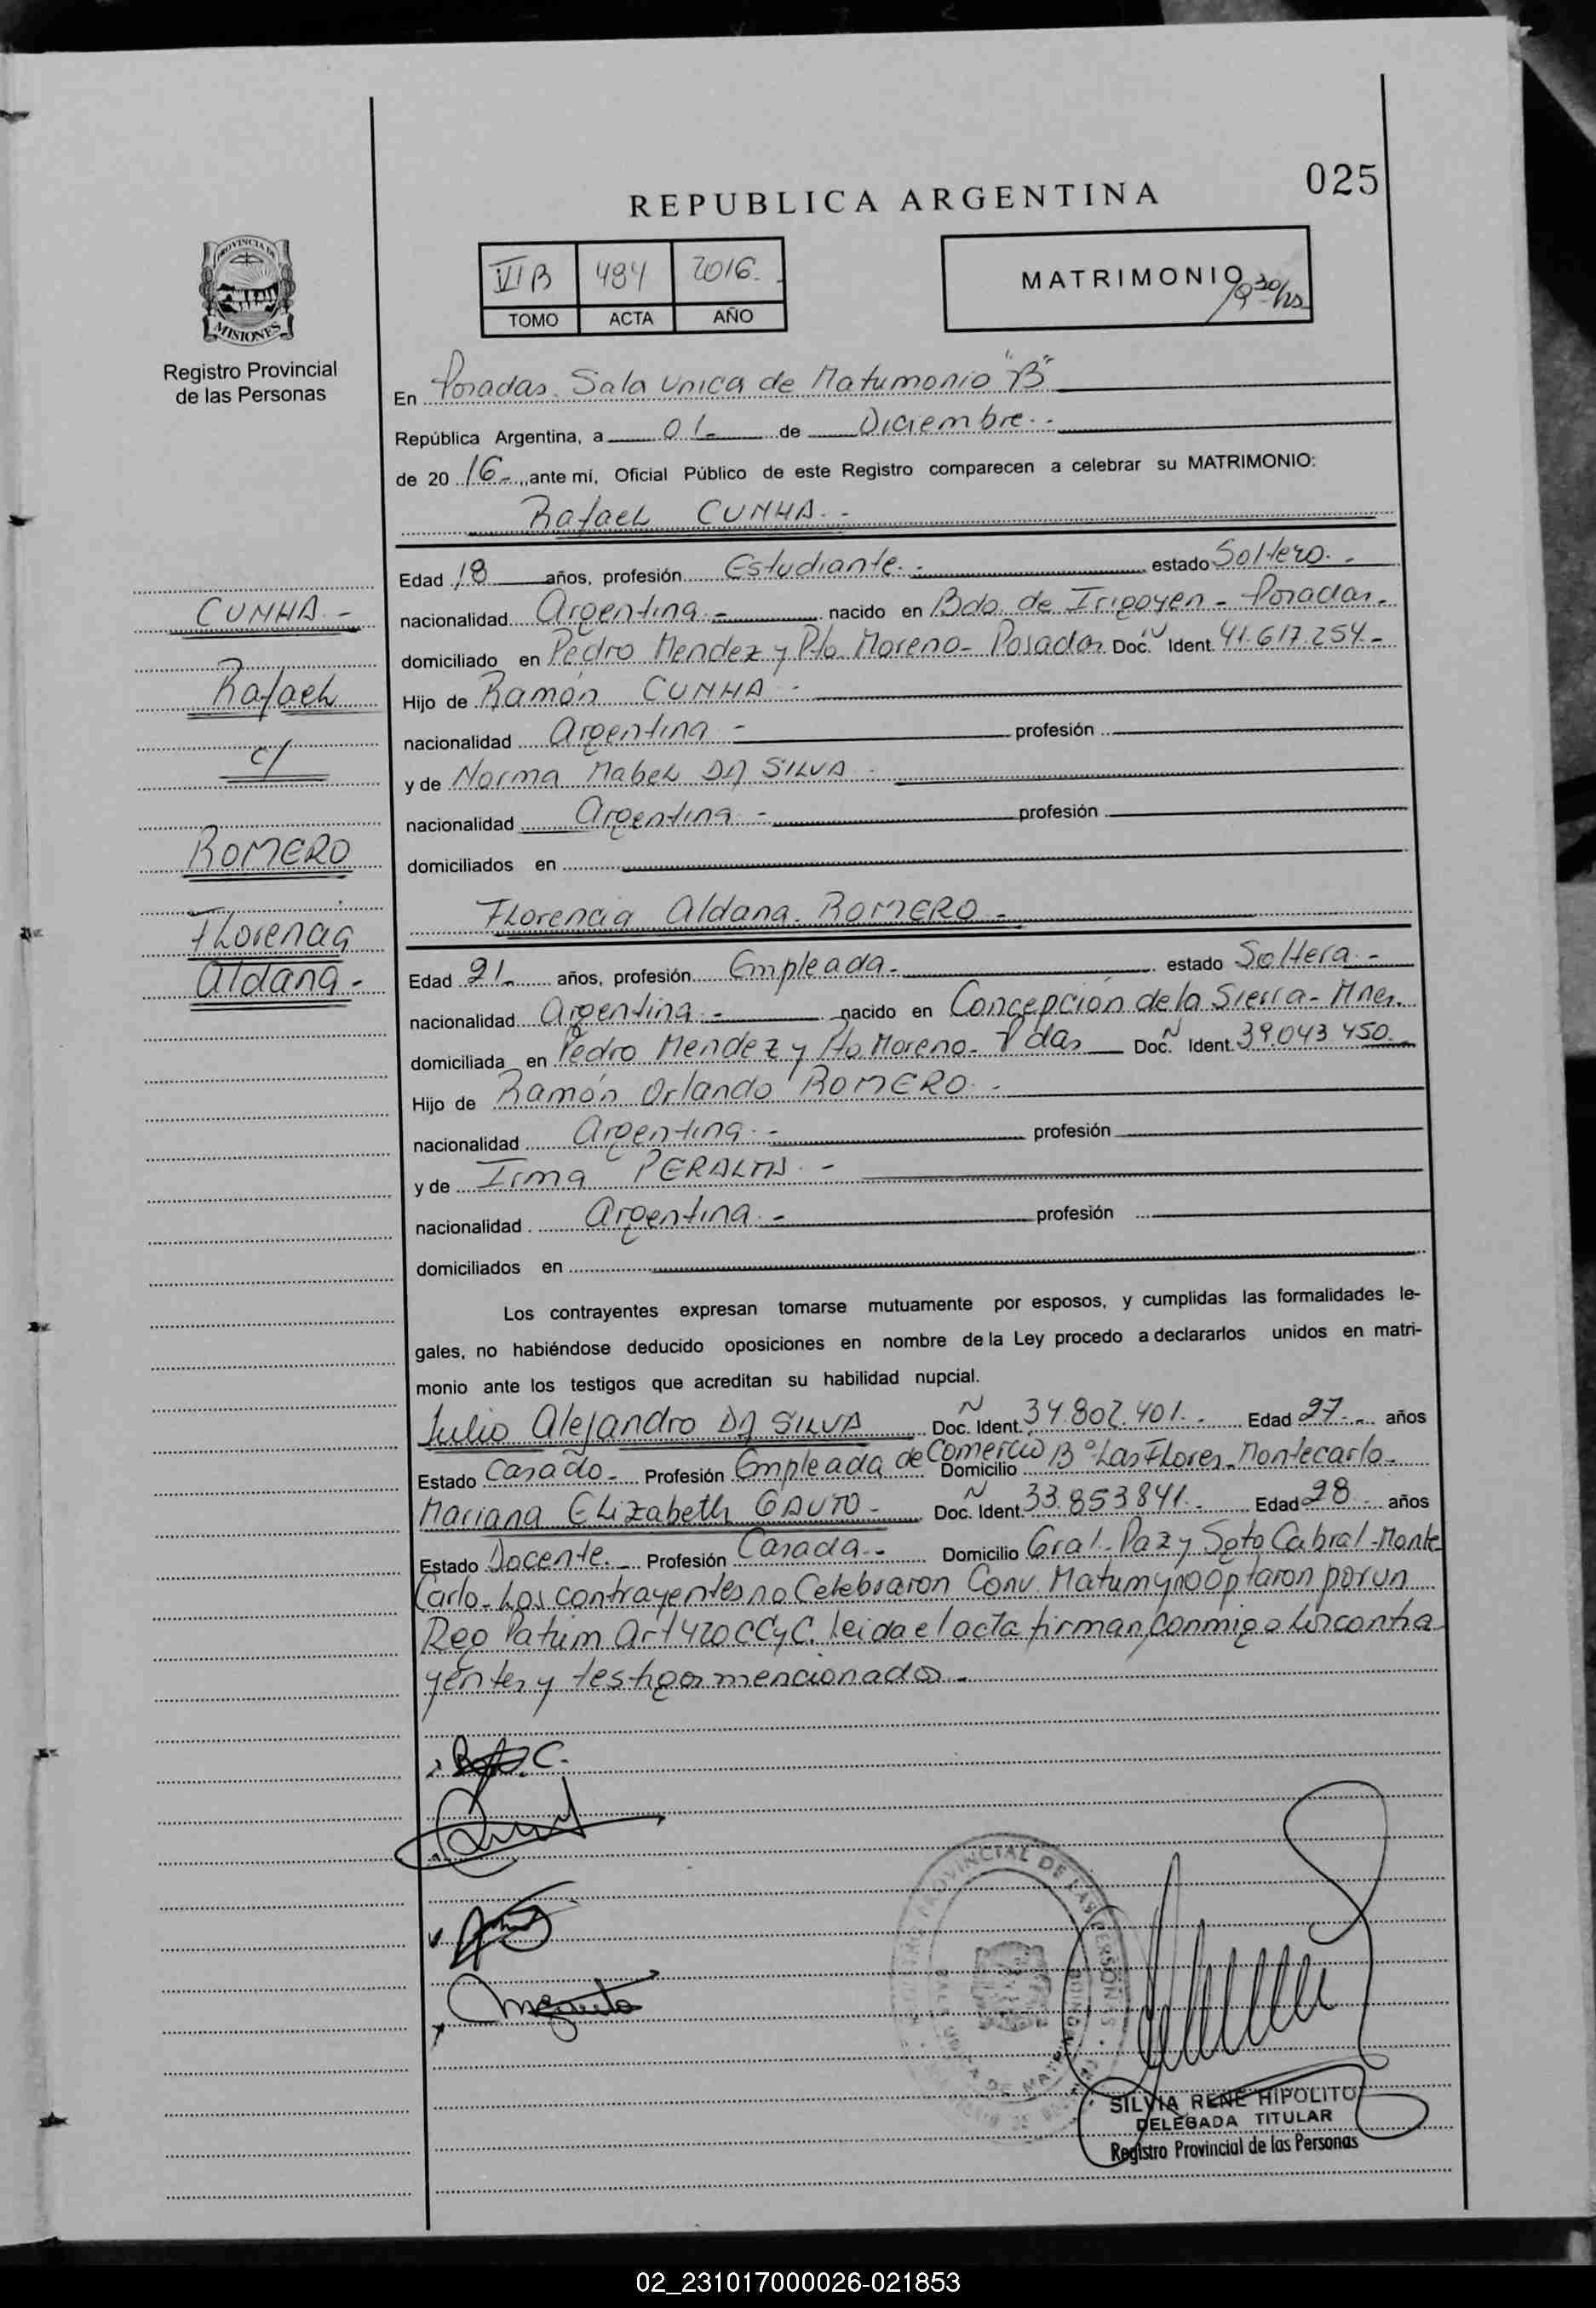 025
REPUBLICA ARGENTINA
PROVINCIA DE
MISIONES
Registro Provincial
de las Personas
VI B 484 2016.-
TOMO ACTA AÑO
MATRIMONIO
9 30/hs
En Posadas. Sala Unica de Matrimonio "B"
República Argentina, a 01- de Diciembre.-
de 20 16-, ante mí, Oficial Público de este Registro comparecen a celebrar su MATRIMONIO:
Rafael CUNHA.-
Edad 18 años, profesión Estudiante.- estado Soltero.-
nacionalidad Argentina.- nacido en Bdo. de Irigoyen - Posadas.-
domiciliado en Pedro Mendez y Pto. Moreno- Posadas Doc. N Ident. 41.617.254.-
Hijo de Ramón CUNHA.-
nacionalidad Argentina.- profesión
y de Norma Mabel DA SILVA.-
nacionalidad Argentina.- profesión
domiciliados en
CUNHA.-
Rafael
c/
ROMERO
Florencia
Aldana.-
Florencia Aldana ROMERO.-
Edad 21.- años, profesión Empleada.- estado Soltera.-
nacionalidad Argentina.- nacido en Concepción de la Sierra- Mnes.
domiciliada en Pedro Mendez y Pto. Moreno- Pdas Doc. N Ident. 39.043.450.-
Hijo de Ramón Orlando ROMERO.-
nacionalidad Argentina.- profesión
y de Irma PERALTA.-
nacionalidad Argentina.- profesión
domiciliados en
Los contrayentes expresan tomarse mutuamente por esposos, y cumplidas las formalidades le-
gales, no habiéndose deducido oposiciones en nombre de la Ley procedo a declararlos unidos en matri-
monio ante los testigos que acreditan su habilidad nupcial.
Julio Alejandro DA SILVA Doc. N Ident. 34.802.401.- Edad 27.- años
Estado Casado.- Profesión Empleada de Comercio Domicilio Bº Las Flores- Montecarlo.-
Mariana Elizabeth GAUTO- Doc. N Ident. 33.853.841.- Edad 28.- años
Estado Docente.- Profesión Casada.- Domicilio Gral. Paz y Soto Cabral-Monte
Carlo- Los contrayentes no Celebraron Conv. Matrim y no Optaron por un
Reg Patrim Art 420 CCyC. leida el acta firman conmigo los contra
yentes y testigos mencionados.-
SILVIA RENE HIPOLITO
DELEGADA TITULAR
Registro Provincial de las Personas
02_231017000026-021853